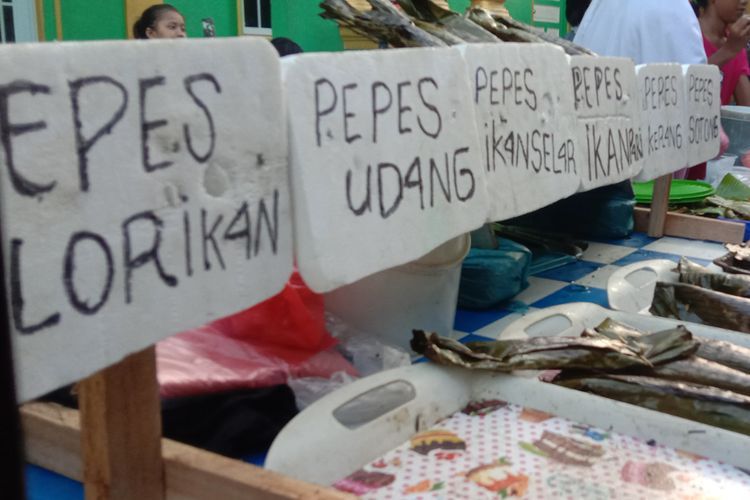 PEPES
TELORIKAN
PEPES
UDANG
PEPES
IKANSELAR
PEPES
IKANPARI
PEPES
KERANG
PEPES
SOTONG